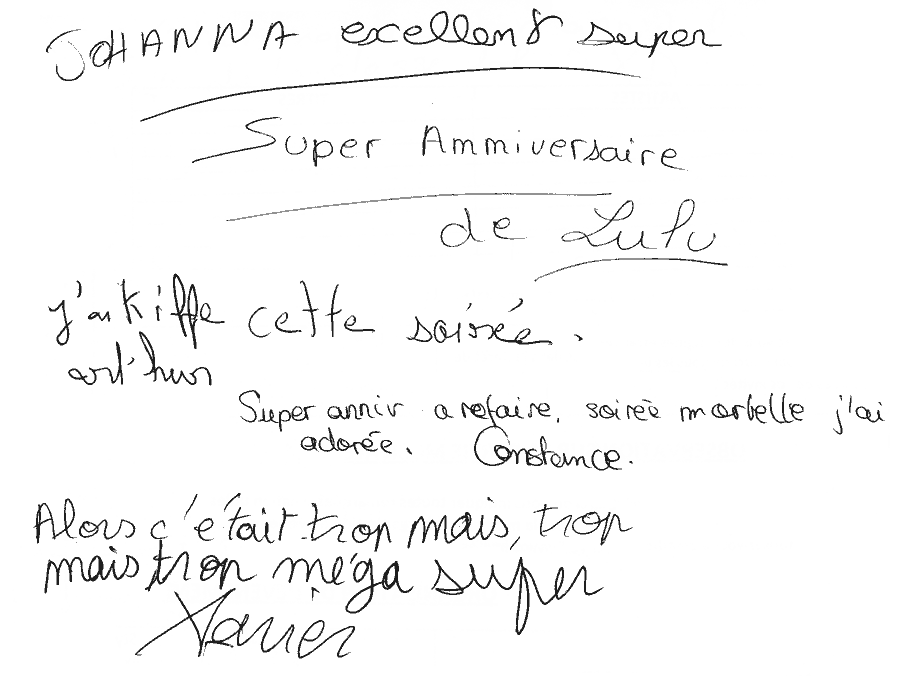 JOHANNA excellent super
Super Ammiversaire
de Lulu
j'ai kiffe cette soirée.
arthur
Super anniv a refaire, soirée mortelle j'ai
adorée. Constance.
Alors c'était trop mais, trop
mais trop méga super
Xavier